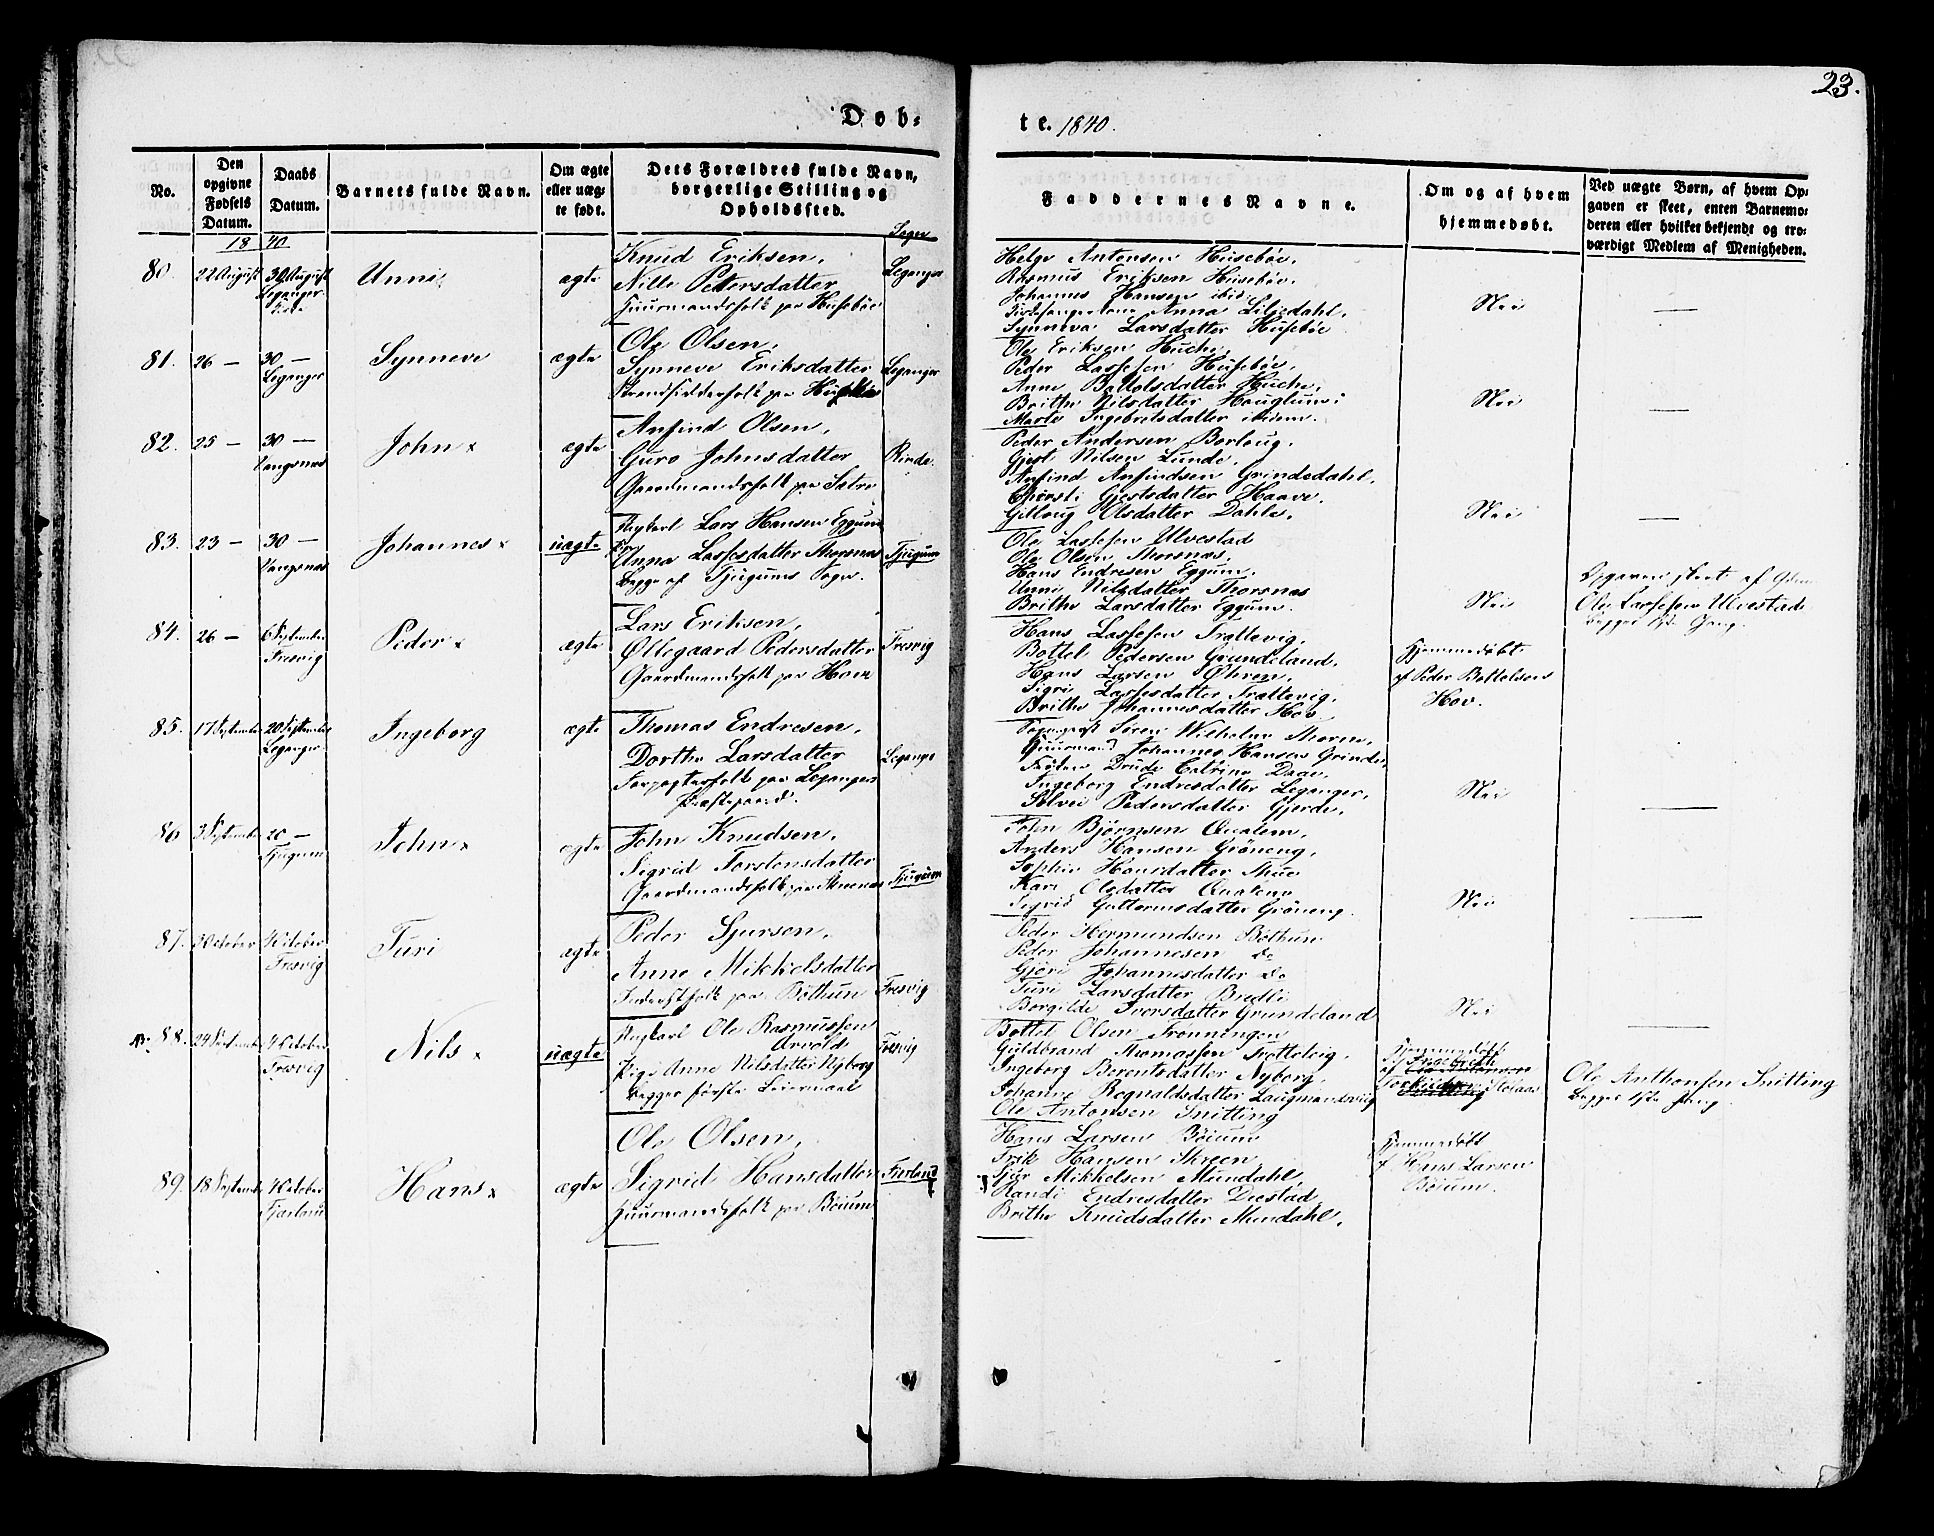 23.
Døb-
te. 1840.
No.
Den opgivne Fødsels Datum.
Daabs Datum.
Barnets fulde Navn.
Om ægte eller uægte født.
Dets Forældres fulde Navn, borgerlige Stilling og Opholdssted.
Sogn
Faddernes Navne.
Om og af hvem hjemmedøbt.
Ved uægte Børn, af hvem Opgaven er skeet, enten Barnemoderen eller hvilket bekjendt og troværdigt Medlem af Menigheden.
1840
80. 22 August 30 August Leganger Unni ægte
Knud Eriksen,
Nille Pettersdatter
Huusmandsfolk paa Husebøe
Leganger
Helge Antonsen Husebøe,
Rasmus Eriksen Husebøe,
Johannes Hansen ibid:
Anna Liljedahl,
Synneva Larsdatter Husebøe
Nei
81. 26 — 30 — Leganger Synneve ægte
Ole Olsen,
Synneve Eriksdatter
Strandsidderfolk paa
Leganger
Ole Eriksen Huche,
Peder Lassesen Husebøe,
Anne Bottolsdatter Huche,
Brithe Nilsdatter Houglum;
Marte Ingebretsdatter ibidem.
Nei
82. 25 — 30 — Vangsnæs John x ægte
Anfind Olsen,
Guro Johnsdatter
Gaardmandsfolk paa Sætre
Rinde.
Peder Andersen Borloug,
Gjest Nilsen Lunde,
Anfind Anfindsen Grindedahl,
Giertsdatter Haave,
Gilloug Olsdatter Dahle,
Nei
83. 23 — 30 — Vangsnæs Johannes x uægte
Ungkarl Lars Hansen Eggum
Unna Lassesdatter Thorsnæs
begge af Tjugums Sogn.
Tjugum
Ole Lassesen Ulvestad
Ole Olsen Thorsnæs,
Hans Endresen Eggum,
Unni Nilsdatter Thorsnæs
Brithe Larsdatter Eggum.
Nei
Opgaven skeet af
Ole Lassesen Ulvestad
begges 1ste Gang.
84. 26 — 6 September Fresvig Peder x ægte
Lars Eriksen,
Øllegaard Pedersdatter
Gaardmandsfolk paa Hove
Fresvig
Hans Lassesen Trællevig,
Bottel Pedersen Grundeland,
Hans Larsen Øhren,
Sigri Lassesdatter Trællevig,
Brithe Johannesdatter Hov
Hjemmedøbt
af Peder Bottolsen
Hov.
85. 17 September 20 September Leganger Ingeborg ægte
Thomas Endresen,
Dorthe Larsdatter
Forpagterfolk paa Leganger
Præstegaard.
Leganger
Sogneprest Søren Wilhelm Thorne,
Huusmand Johannes Hansen Grinde,
Frøken Drude Catrine Daae,
Ingeborg Endresdatter Leganger,
Sølvei Pedersdatter Gjerde,
Nei
86 3 September 20 — Tjugum John x ægte
John Knudsen,
Sigrid Torstensdatter
Gaardmandsfolk paa
Tjugum
John Bjørnsen Qualem,
Anders Hansen Grøneng,
Sophie Hansdatter
Kari Olsdatter Qualem
Sigrid Guttormsdatter Grøneng.
Nei
87. 3 October 4 October Fresvig Turi ægte
Peder Sjursen,
Anne Mikkelsdatter
Inderstfolk paa Bøthun
Fresvig
Peder Hermundsen Bøthun
Peder Johannesen do
Gjøri Johannesdatter do
Turi Larsdatter Bredli
Borgilde Iversdatter Grundeland
Nei
88. 24 September 4 October Fresvig Nils x uægte
Ungkarl Ole Rasmussen
Pige Anne Nilsdatter Nyborg
begges første Leiermaal
Fresvig
Bottel Olsen Frønningen
Guldbrand Thomassen Trolleteig,
Ingeborg Berentsdatter Nyborg,
Johanne Rognaldsdatter Laugmandsviig
Ole Antonsen Snitting
Hjemmedøbt
Ole Anthonsen Snitting
begges 1ste Gang.
89. 18 September 4 October Fjærland Hans x ægte
Ole Olsen,
Sigrid Hansdatter
Huusmandsfolk paa Bøium
Fierland
Hans Larsen Bøium
Erik Hansen Skreen
Sjur Mikkelsen Mundahl,
Randi Endresdatter Distad
Brithe Knudsdatter Mundahl.
Hjemmedøbt
af Hans Larsen
Bøium.